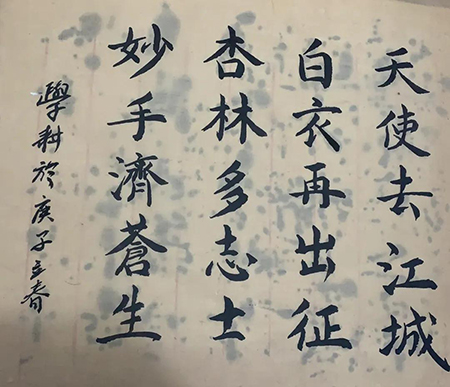 天使去江城
白衣再出征
杏林多志士
妙手濟蒼生
學耕於庚子立春